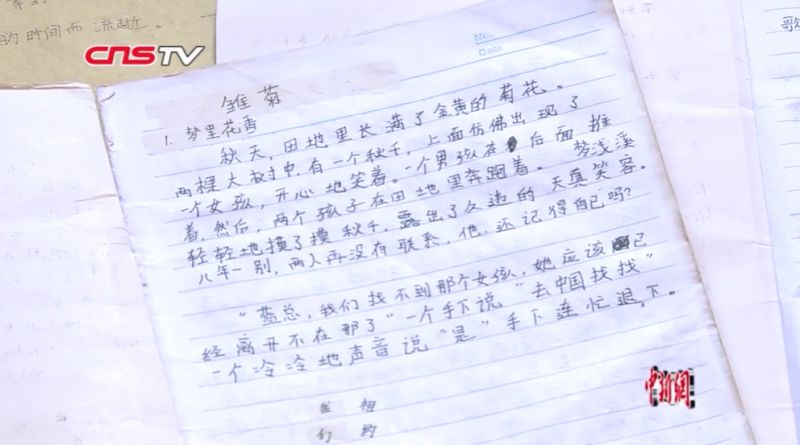 的时间而流逝。
CNSTV
No.
Date
歌
雏菊
1. 梦里花香
秋天，田地里长满了金黄的菊花。
两棵大树中，有一个秋千，上面仿佛出现了
一个女孩，开心地笑着。一个男孩在后面推
着，然后，两个孩子在田地里奔跑着。梦浅溪
轻轻地摸了摸秋千，露出了久违的天真笑容。
八年一别，两人再没有联系，他，还记得自己吗？
“蓝总，我们找不到那个女孩，她应该已
经离开不在那了”一个手下说“去中国找找”
一个冷冷地声音说“是”手下连忙退下。
我 相
们 约
中新網